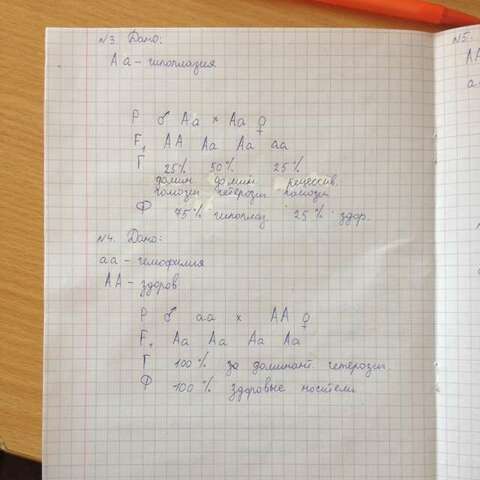 №3 Дано:
Аа – гипоплазия
Р ♂ Аа × Аа ♀
F₁ АА Аа Аа аа
Г 25% 50% 25%
домин. домин. рецессив.
гомозиг гетерозиг гомозиг
Ф 75% гипоплаз 25% здор.
№4. Дано:
аа – гемофилия
АА – здоров
Р ♂ аа × АА ♀
F₁ Аа Аа Аа Аа
Г 100% за доминант. гетерозиг
Ф 100% здоровые носители
№5.
АА
а